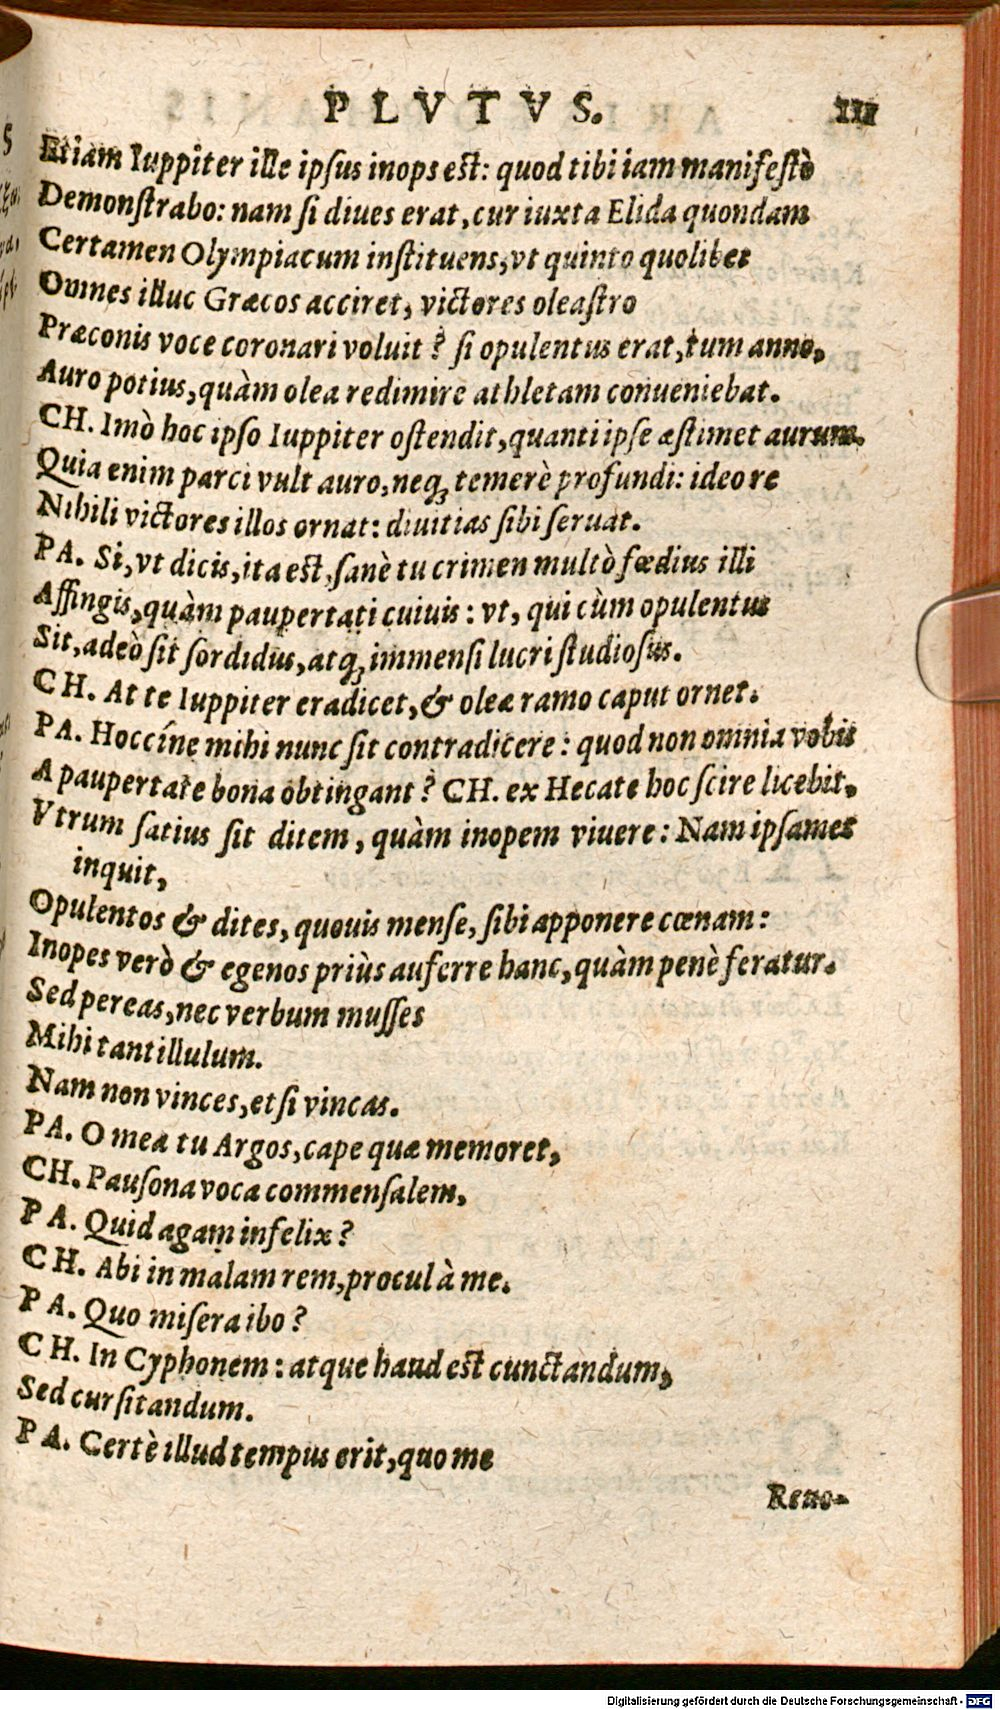 PLVTVS. 111
Etiam Iuppiter ille ipſus inops eſt: quod tibi iam manifeſtò
Demonſtrabo: nam ſi diues erat, cur iuxta Elida quondam
Certamen Olympiacum inſtituens, vt quinto quolibet
Omnes illuc Græcos acciret, victores oleaſtro
Præconis voce coronari voluit? ſi opulentus erat, tum anno,
Auro potius, quàm olea redimire athletam conueniebat.
CH. Imò hoc ipſo Iuppiter oſtendit, quanti ipſe æſtimet aurum.
Quia enim parci vult auro, neq; temerè profundi: ideo re
Nihili victores illos ornat: diuitias ſibi ſeruat.
PA. Si, vt dicis, ita eſt, ſanè tu crimen multò fœdius illi
Affingis, quàm paupertati cuiuis: vt, qui cùm opulentus
Sit, adeò ſit ſordidus, atq; immenſi lucri ſtudioſus.
CH. At te Iuppiter eradicet, & oleæ ramo caput ornet.
PA. Hoccíne mihi nunc ſit contradicere: quod non omnia vobis
A paupertate bona obtingant? CH. ex Hecate hoc ſcire licebit,
Vtrum ſatius ſit ditem, quàm inopem viuere: Nam ipſamet
inquit,
Opulentos & dites, quouis menſe, ſibi apponere cœnam:
Inopes verò & egenos priùs auferre hanc, quàm penè feratur.
Sed pereas, nec verbum muſſes
Mihi tantillulum.
Nam non vinces, etſi vincas.
PA. O mea tu Argos, cape quæ memoret,
CH. Pauſona voca commenſalem,
PA. Quid agam infelix?
CH. Abi in malam rem, procul à me.
PA. Quo miſera ibo?
CH. In Cyphonem: atque haud eſt cunctandum,
Sed curſitandum.
PA. Certè illud tempus erit, quo me
Reuo-
Digitalisierung gefördert durch die Deutsche Forschungsgemeinschaft - DFG